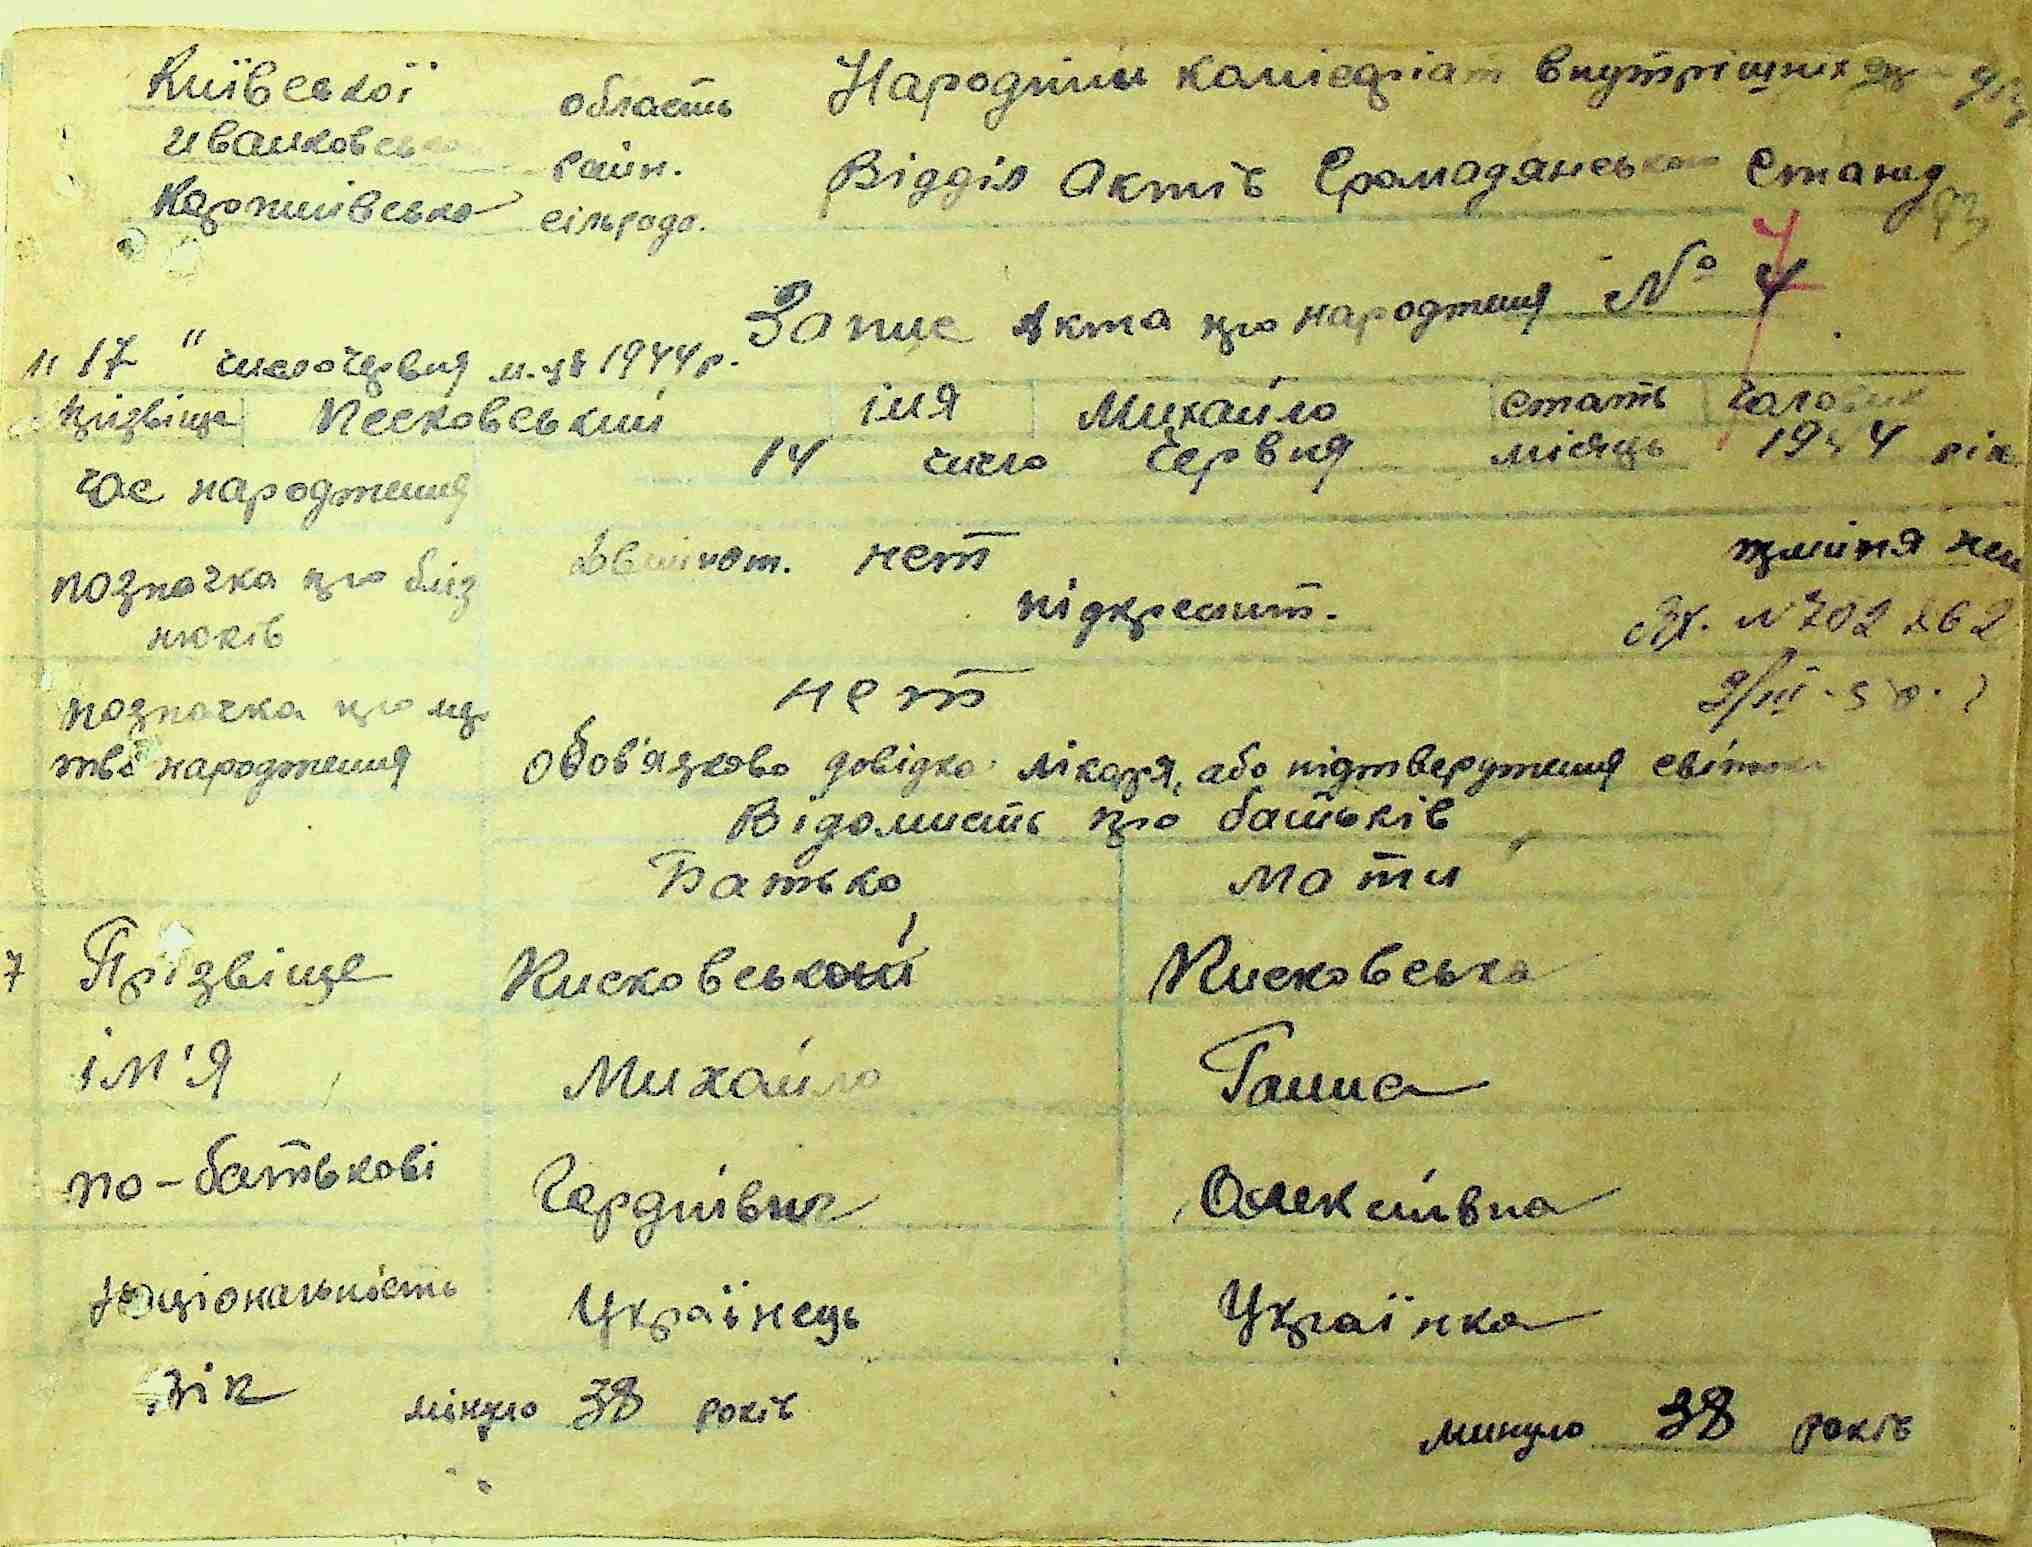 Київської область Народний комісаріат внутрішніх
Иванковська район.
Карпилівська сільрада. Відділ Актів Громадянського Стану
Запис Акта про народження № 7
"17" число червня м-ця 1944 р.
Прізвище Кисковський імя Михайло стать чоловік
час народження 14 число червня місяць 1944 рік
позначка про близнюків двійнят. нет
підкреслит.
№ 702262
позначка про мертве народження нет
Обов'язково довідка лікаря, або підтвердження свідків
Відомисть про батьків
Батько Мати
7 Прізвище Кисковський Кисковська
ім'я Михайло Ганна
по-батькові Гордиївич Олексіївна
Національність Українець Українка
Вік мінуло 38 років минуло 38 років